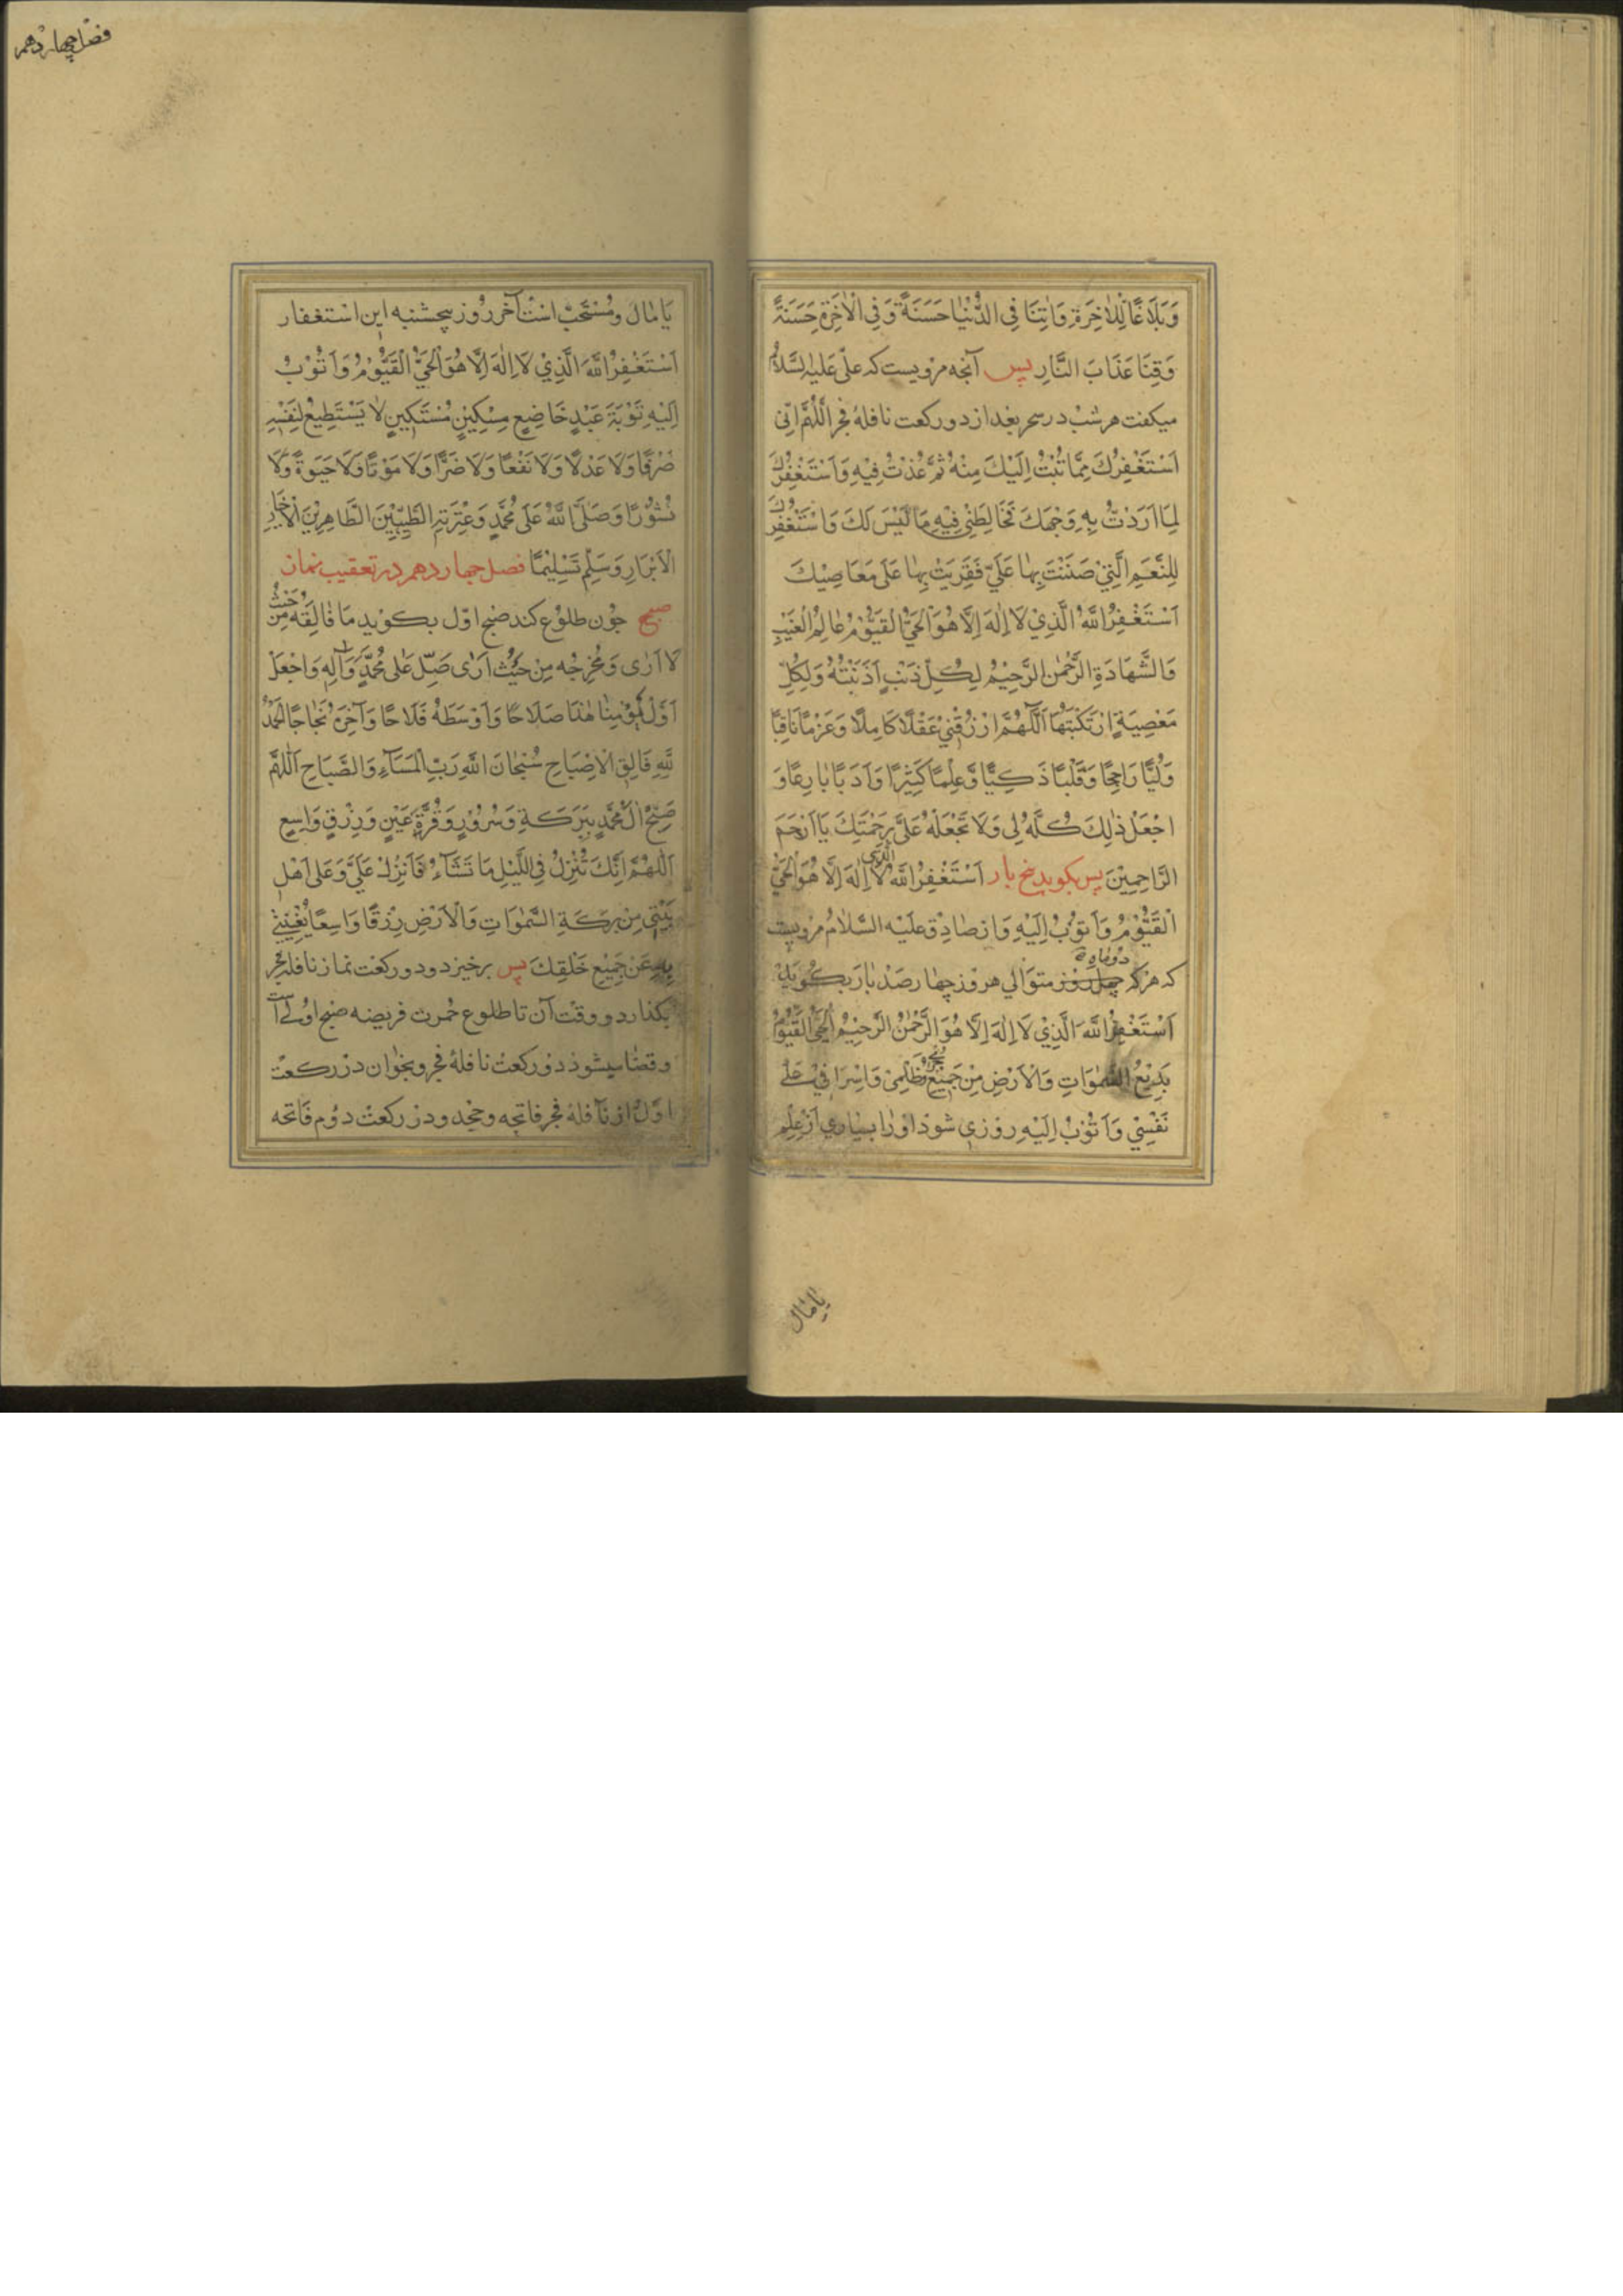 وَبَلَاغًا لِلْاٰخِرَةِ وَاٰتِنَا فِي الدُّنْيَا حَسَنَةً وَفِي الْاٰخِرَةِ حَسَنَةً
وَقِنَا عَذَابَ النَّارِ پس آنچه مرویست که علی علیه السلام
میکفت هر شب در سحر بعد از دو رکعت نافلهٔ فجر اَللّٰهُمَّ اِنّی
اَسْتَغْفِرُكَ مِمَّا تُبْتُ اِلَيْكَ مِنْهُ ثُمَّ عُدْتُ فِيْهِ وَاَسْتَغْفِرُكَ
لِمَا اَرَدْتُ بِهِ وَجْهَكَ فَخَالَطَنِي فِيْهِ مَا لَيْسَ لَكَ وَاَسْتَغْفِرُكَ
لِلنِّعَمِ الَّتِيْ مَنَنْتَ بِهَا عَلَيَّ فَقَوِيَتْ بِهَا عَلَى مَعَاصِيْكَ
اَسْتَغْفِرُ اللّٰهَ الَّذِيْ لَا اِلٰهَ اِلَّا هُوَ الْحَيُّ الْقَيُّوْمُ عَالِمُ الْغَيْبِ
وَالشَّهَادَةِ الرَّحْمٰنُ الرَّحِيْمُ لِكُلِّ ذَنْبٍ اَذْنَبْتُهُ وَلِكُلِّ
مَعْصِيَةٍ ارْتَكَبْتُهَا اَللّٰهُمَّ ارْزُقْنِيْ عَقْلًا كَامِلًا وَعَزْمًا ثَاقِبًا
وَلُبًّا رَاجِحًا وَقَلْبًا ذَكِيًّا وَعِلْمًا كَثِيْرًا وَاَدَبًا بَارِعًا وَ
اجْعَلْ ذٰلِكَ كُلَّهُ لِي وَلَا تَجْعَلْهُ عَلَيَّ بِرَحْمَتِكَ يَا اَرْحَمَ
الرَّاحِمِيْنَ پس بکوید پنج بار اَسْتَغْفِرُ اللّٰهَ الَّذِي لَا اِلٰهَ اِلَّا هُوَ الْحَيُّ
الْقَيُّوْمُ وَاَتُوْبُ اِلَيْهِ وَاز صادق علیه السلام مرویست
که هرکه دو ماه متوالی هر روز چهار صد بار بکوید
اَسْتَغْفِرُ اللّٰهَ الَّذِيْ لَا اِلٰهَ اِلَّا هُوَ الرَّحْمٰنُ الرَّحِيْمُ الْحَيُّ الْقَيُّوْمُ
بَدِيْعُ السَّمٰوَاتِ وَالْاَرْضِ مِنْ جَمِيْعِ ظُلْمِيْ وَاِسْرَافِيْ عَلٰى
نَفْسِيْ وَاَتُوْبُ اِلَيْهِ روزی شود او را بسیاری از علم
یا مال
فصل چهاردهم
یا مال ومستحب است آخر روز پنجشنبه این استغفار
اَسْتَغْفِرُ اللّٰهَ الَّذِيْ لَا اِلٰهَ اِلَّا هُوَ الْحَيُّ الْقَيُّوْمُ وَاَتُوْبُ
اِلَيْهِ تَوْبَةَ عَبْدٍ خَاضِعٍ مِسْكِيْنٍ مُسْتَكِيْنٍ لَا يَسْتَطِيْعُ لِنَفْسِهِ
صَرْفًا وَلَا عَدْلًا وَلَا نَفْعًا وَلَا ضَرًّا وَلَا مَوْتًا وَلَا حَيٰوةً وَلَا
نُشُوْرًا وَصَلَّى اللّٰهُ عَلَى مُحَمَّدٍ وَعِتْرَتِهِ الطَّيِّبِيْنَ الطَّاهِرِيْنَ الْاَخْيَارِ
الْاَبْرَارِ وَسَلِّمْ تَسْلِيْمًا فصل چهاردهم در تعقیب نماز
صبح چون طلوع کند صبح اول بکوید یَا فَالِقَهُ مِنْ حَيْثُ
لَا اَرٰى وَمُخْرِجَهُ مِنْ حَيْثُ اَرٰى صَلِّ عَلٰى مُحَمَّدٍ وَاٰلِهِ وَاجْعَلْ
اَوَّلَ يَوْمِنَا هٰذَا صَلَاحًا وَاَوْسَطَهُ فَلَاحًا وَاٰخِرَهُ نَجَاحًا اَلْحَمْدُ
لِلّٰهِ فَالِقِ الْاِصْبَاحِ سُبْحَانَ اللّٰهِ رَبِّ الْمَسَاءِ وَالصَّبَاحِ اَللّٰهُمَّ
صَبِّحْ اٰلَ مُحَمَّدٍ بِبَرَكَةٍ وَسُرُوْرٍ وَقُرَّةِ عَيْنٍ وَرِزْقٍ وَاسِعٍ
اَللّٰهُمَّ اِنَّكَ تُنْزِلُ فِي اللَّيْلِ مَا تَشَاءُ فَاَنْزِلْ عَلَيَّ وَعَلٰى اَهْلِ
بَيْتِي مِنْ بَرَكَةِ السَّمٰوَاتِ وَالْاَرْضِ رِزْقًا وَاسِعًا تُغْنِيْنِيْ
بِهِ عَنْ جَمِيْعِ خَلْقِكَ پس برخیزد ودو رکعت نماز نافله فجر
بکذارد ووقت آن تا طلوع حمرت فریضه صبح اولی است
وقضا میشود دو رکعت نافلهٔ فجر وبخوان در رکعت
اول از نافلهٔ فجر فاتحه وجحد ودر رکعت دوم فاتحه